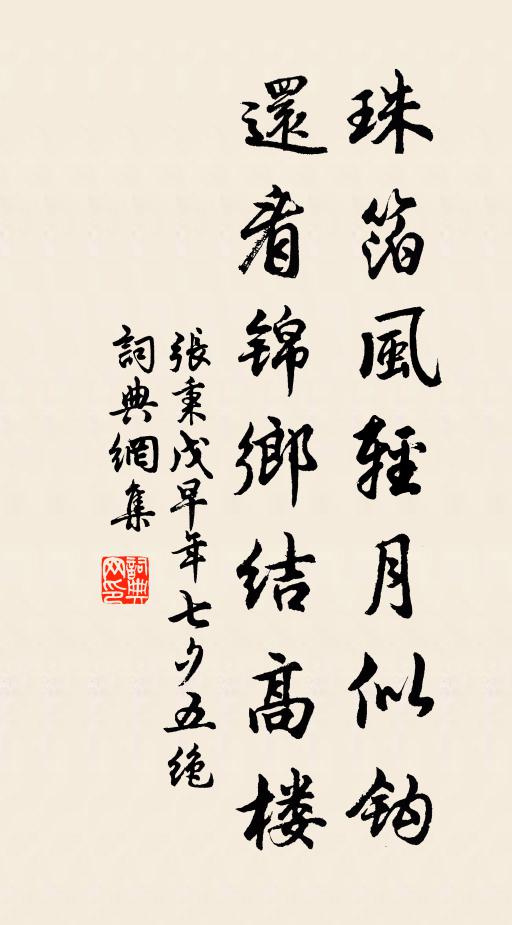 珠箔風輕月似鈎
還看錦鄉結高楼
張秉戊早年七夕五絶
詞典網集
詞典网印